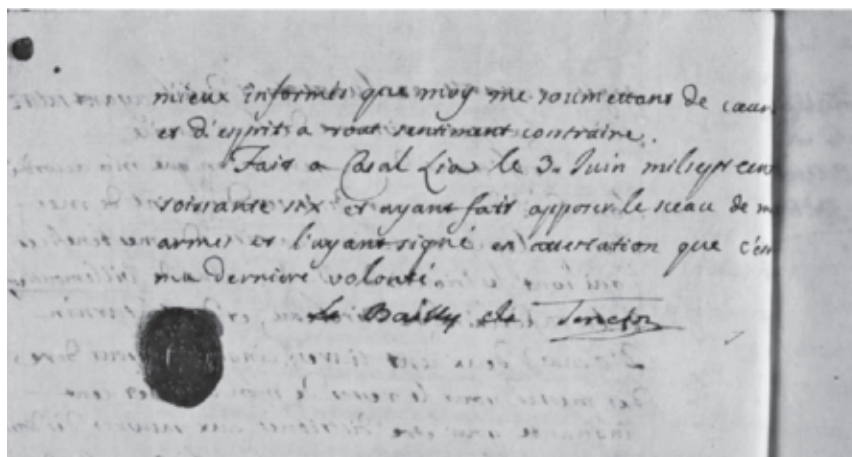 mieux informés que moy me soumettant de cœur
et d'esprit a tout sentiment contraire.
Fait a Casal Lia le 3. Juin mil sept cent
soixante six et ayant fait apposer le sceau de m
armes et l'ayant signé en attestation que c'est
ma derniere volonté
Le Bailly de Tencin